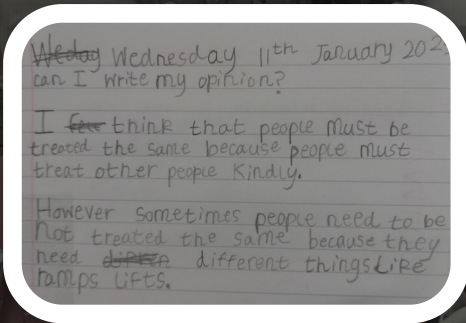 Wednesday 11th January 202
can I write my opinion?
I think that people must be
treated the same because people must
treat other people Kindly.
However sometimes people need to be
not treated the same because they
need different things Like
ramps Lifts.